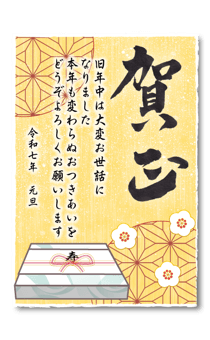 賀正
旧年中は大変お世話に
なりました
本年も変わらぬおつきあいを
どうぞよろしくお願いします
令和七年　元旦
寿